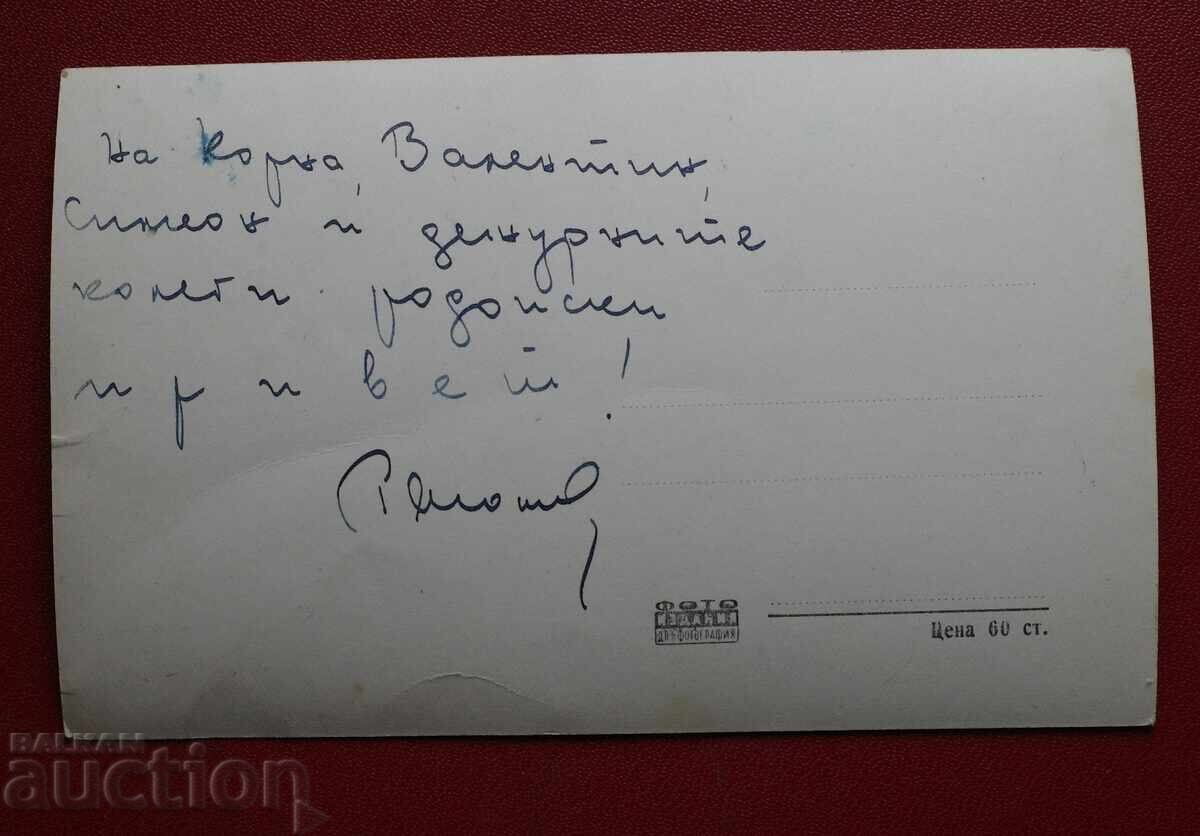 На Корна, Валентин,
Симеон и дежурните
колеги родопски
привет!
ФОТО
ИЗДАНИЕ
ДП"ФОТОГРАФИЯ"
Цена 60 ст.
BALKAN
auction